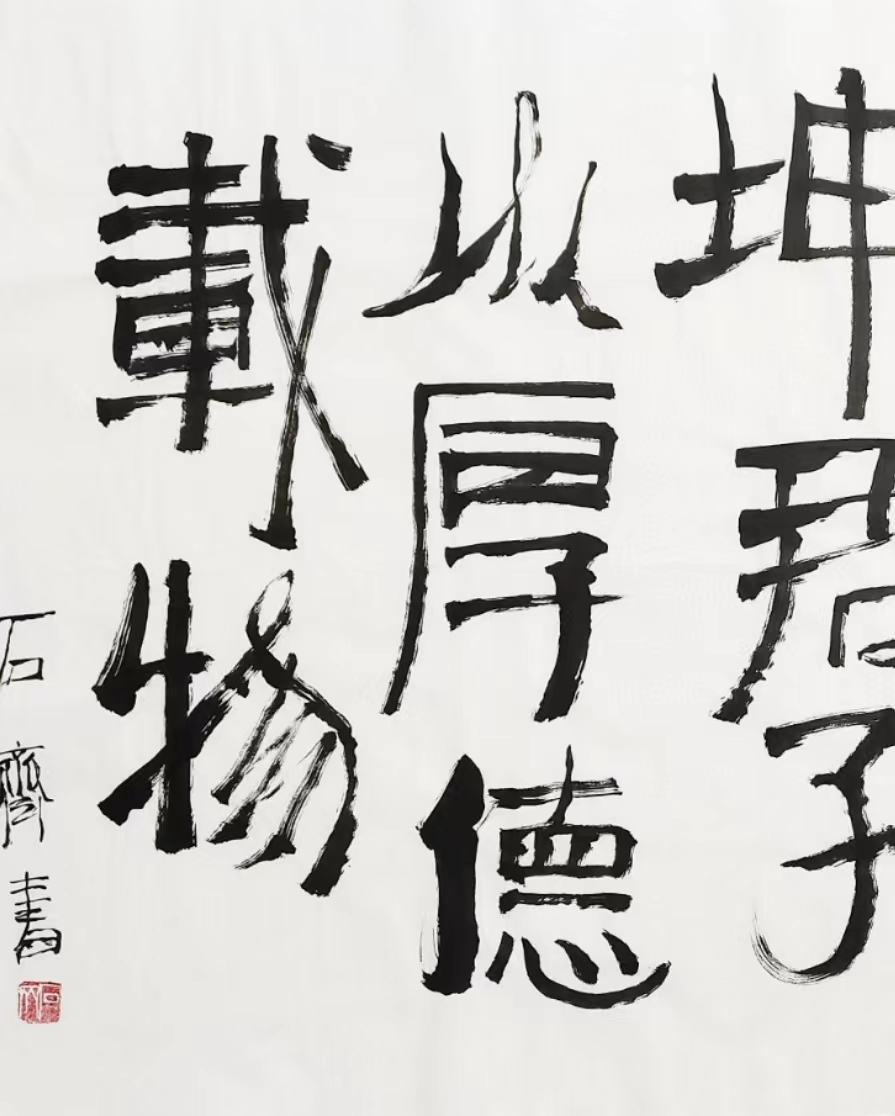 坤君子
以厚德
載物
石齊書